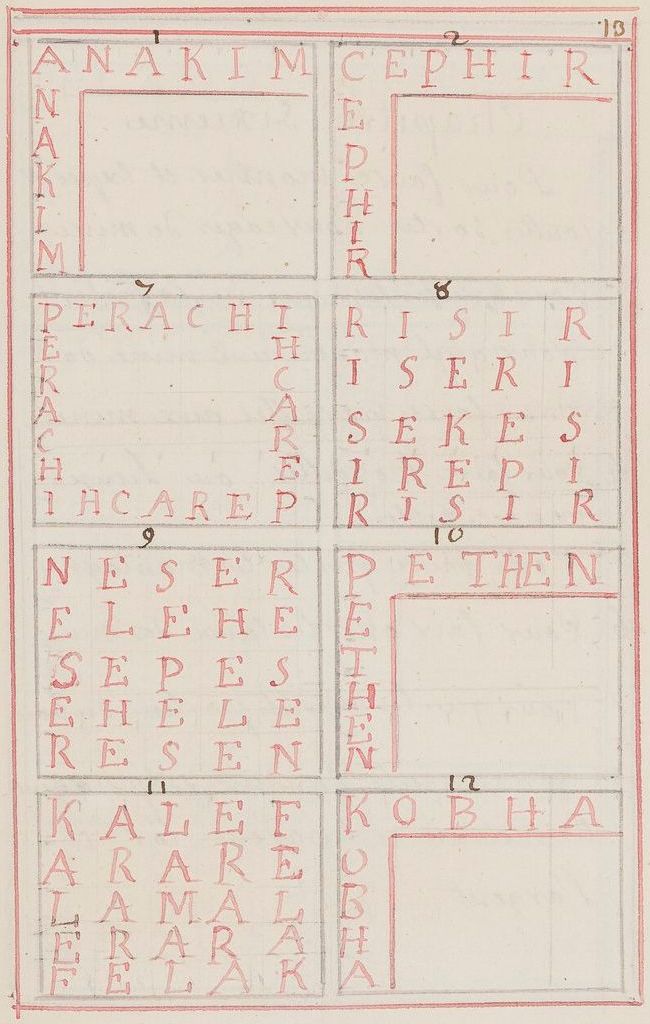 13
1
ANAKIM
N
A
K
I
M
2
CEPHIR
E
P
H
I
R
7
PERACHI
E H
R C
A A
C R
H E
IHCAREP
8
R I S I R
I S E R I
S E K E S
I R E P I
R I S I R
9
N E S E R
E L E H E
S E P E S
E H E L E
R E S E N
10
PETHEN
E
T
H
E
N
11
K A L E F
A R A R E
L A M A L
E R A R A
F E L A K
12
KOBHA
O
B
H
A